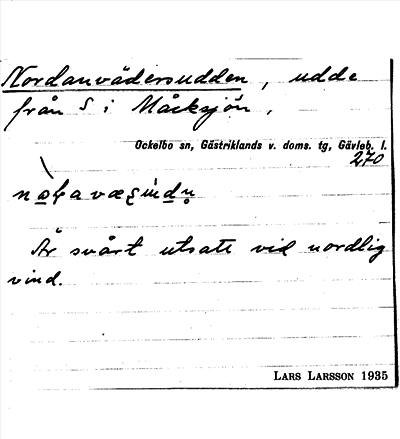 Nordanvädersudden, udde
från S i Måcksjön.
Ockelbo sn, Gästriklands v. doms. tg, Gävleb. l.
270
Är svårt utsatt vid nordlig
vind.
LARS LARSSON 1935